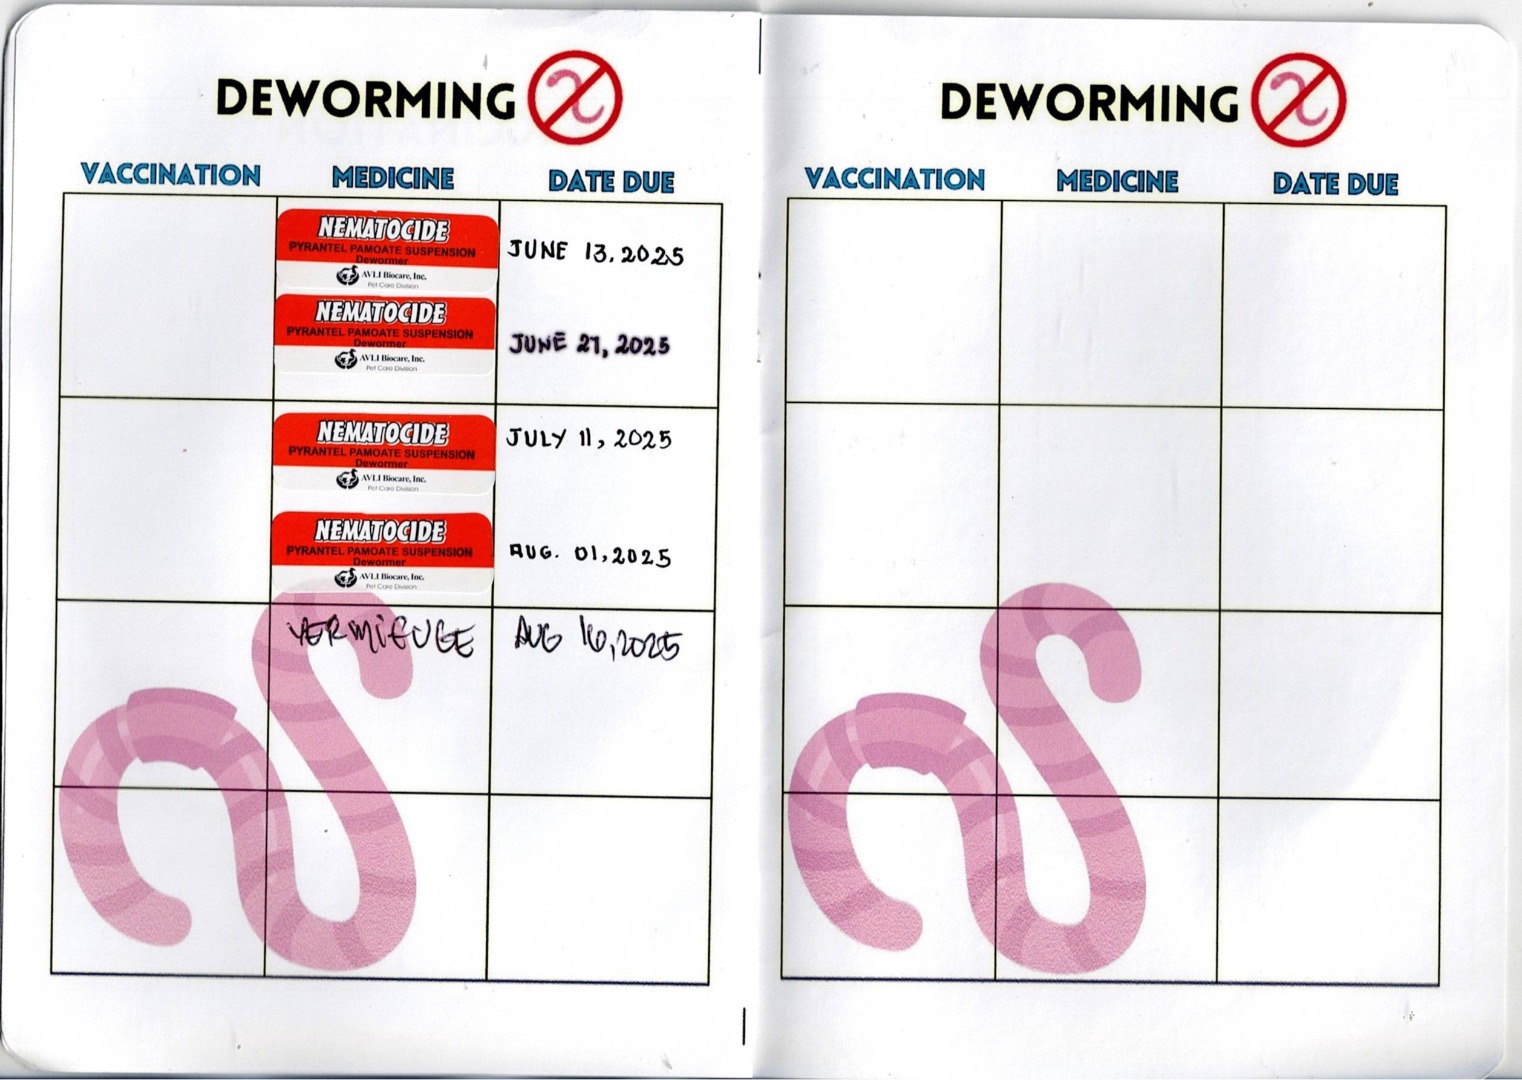 DEWORMING
VACCINATION MEDICINE DATE DUE
NEMATOCIDE
PYRANTEL PAMOATE SUSPENSION
Dewormer
AVLI Biocare, Inc.
Pet Care Division
JUNE 13, 2025
NEMATOCIDE
PYRANTEL PAMOATE SUSPENSION
Dewormer
AVLI Biocare, Inc.
Pet Care Division
JUNE 27, 2025
NEMATOCIDE
PYRANTEL PAMOATE SUSPENSION
Dewormer
AVLI Biocare, Inc.
Pet Care Division
JULY 11, 2025
NEMATOCIDE
PYRANTEL PAMOATE SUSPENSION
Dewormer
AVLI Biocare, Inc.
Pet Care Division
AUG. 01, 2025
VERMIFUGE AUG 16, 2025
DEWORMING
VACCINATION MEDICINE DATE DUE